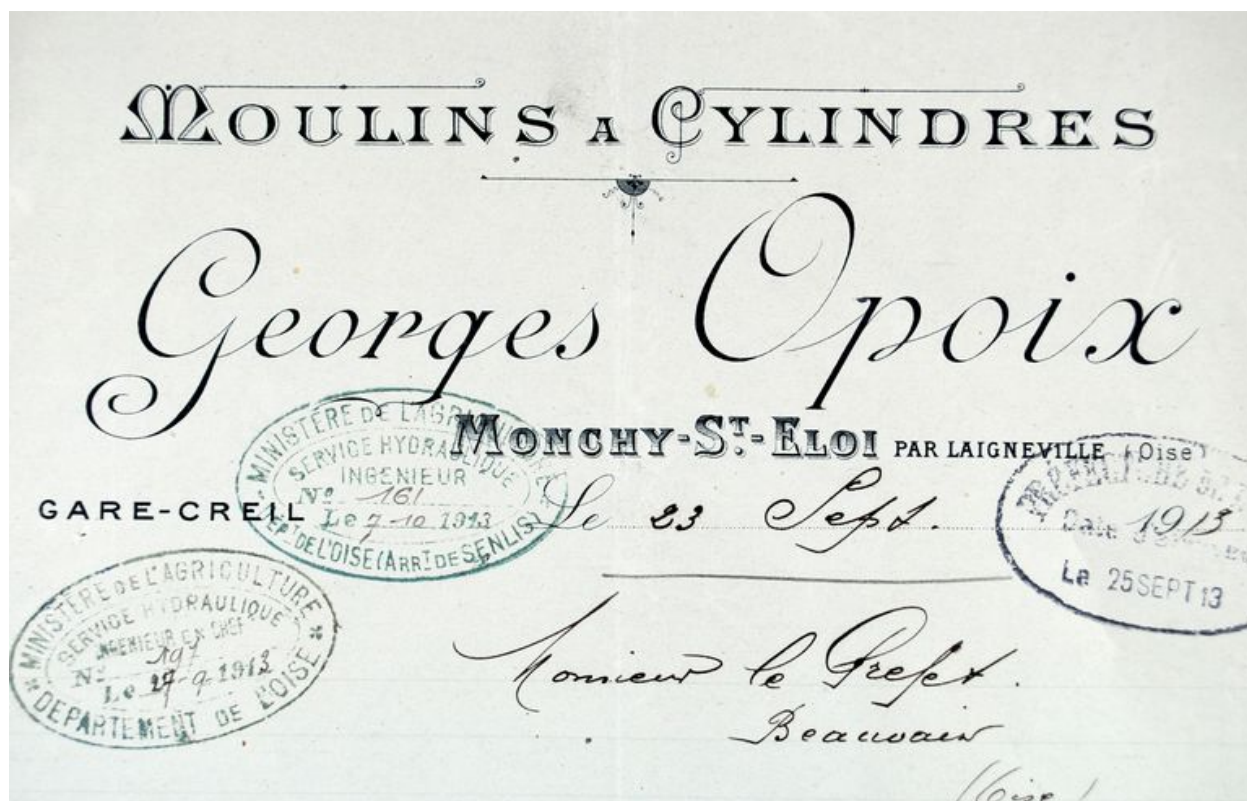 MOULINS A CYLINDRES
Georges Opoix
MONCHY-ST-ELOI PAR LAIGNEVILLE (Oise)
GARE-CREIL
Le 23 Sept. 1913
MINISTÈRE DE L'AGRICULTURE
SERVICE HYDRAULIQUE
INGENIEUR
No 161
Le 7-10 1913
DEPT DE L'OISE (ARRT DE SENLIS)
PRÉFECTURE DE
Date
Le 25 SEPT 13
MINISTÈRE DE L'AGRICULTURE
SERVICE HYDRAULIQUE
INGENIEUR EN CHEF
No 197
Le 27-9 1913
DEPARTEMENT DE L'OISE
Monsieur le Prefet.
Beauvais
(Oise)